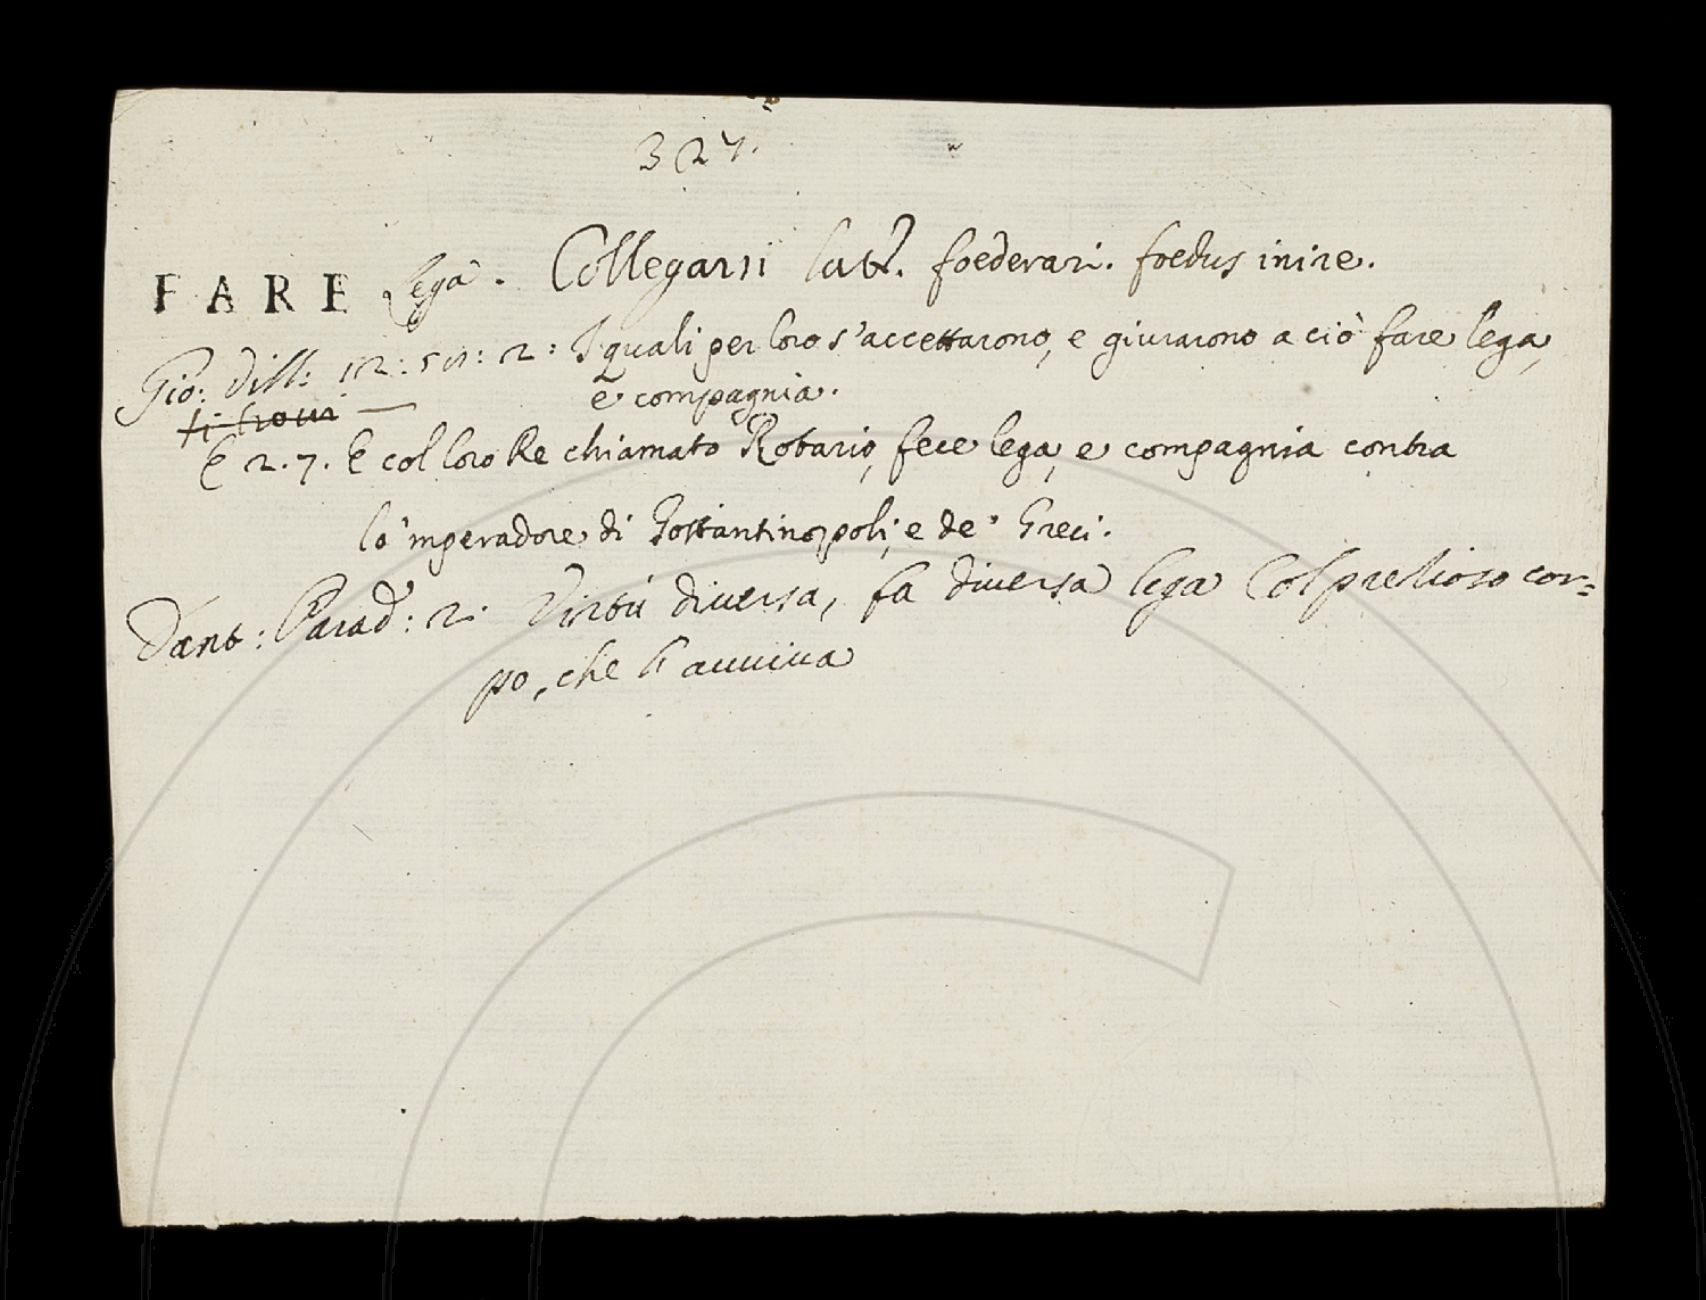 327.
FARE lega. Collegarsi Lat. foederari. foedus inire.
Gio: Vill: 12: 51: 2: I quali per loro s'accettarono, e giurarono a ciò fare lega,
e compagnia.
si trovi
E 2.7. E col loro Re chiamato Rotario, fece lega, e compagnia contra
lo 'mperadore di Gostantinopoli, e de' Greci.
Dant: Parad: 2: Virtù diversa, fa diversa lega Col prezioso cor=
po, che l'avviva